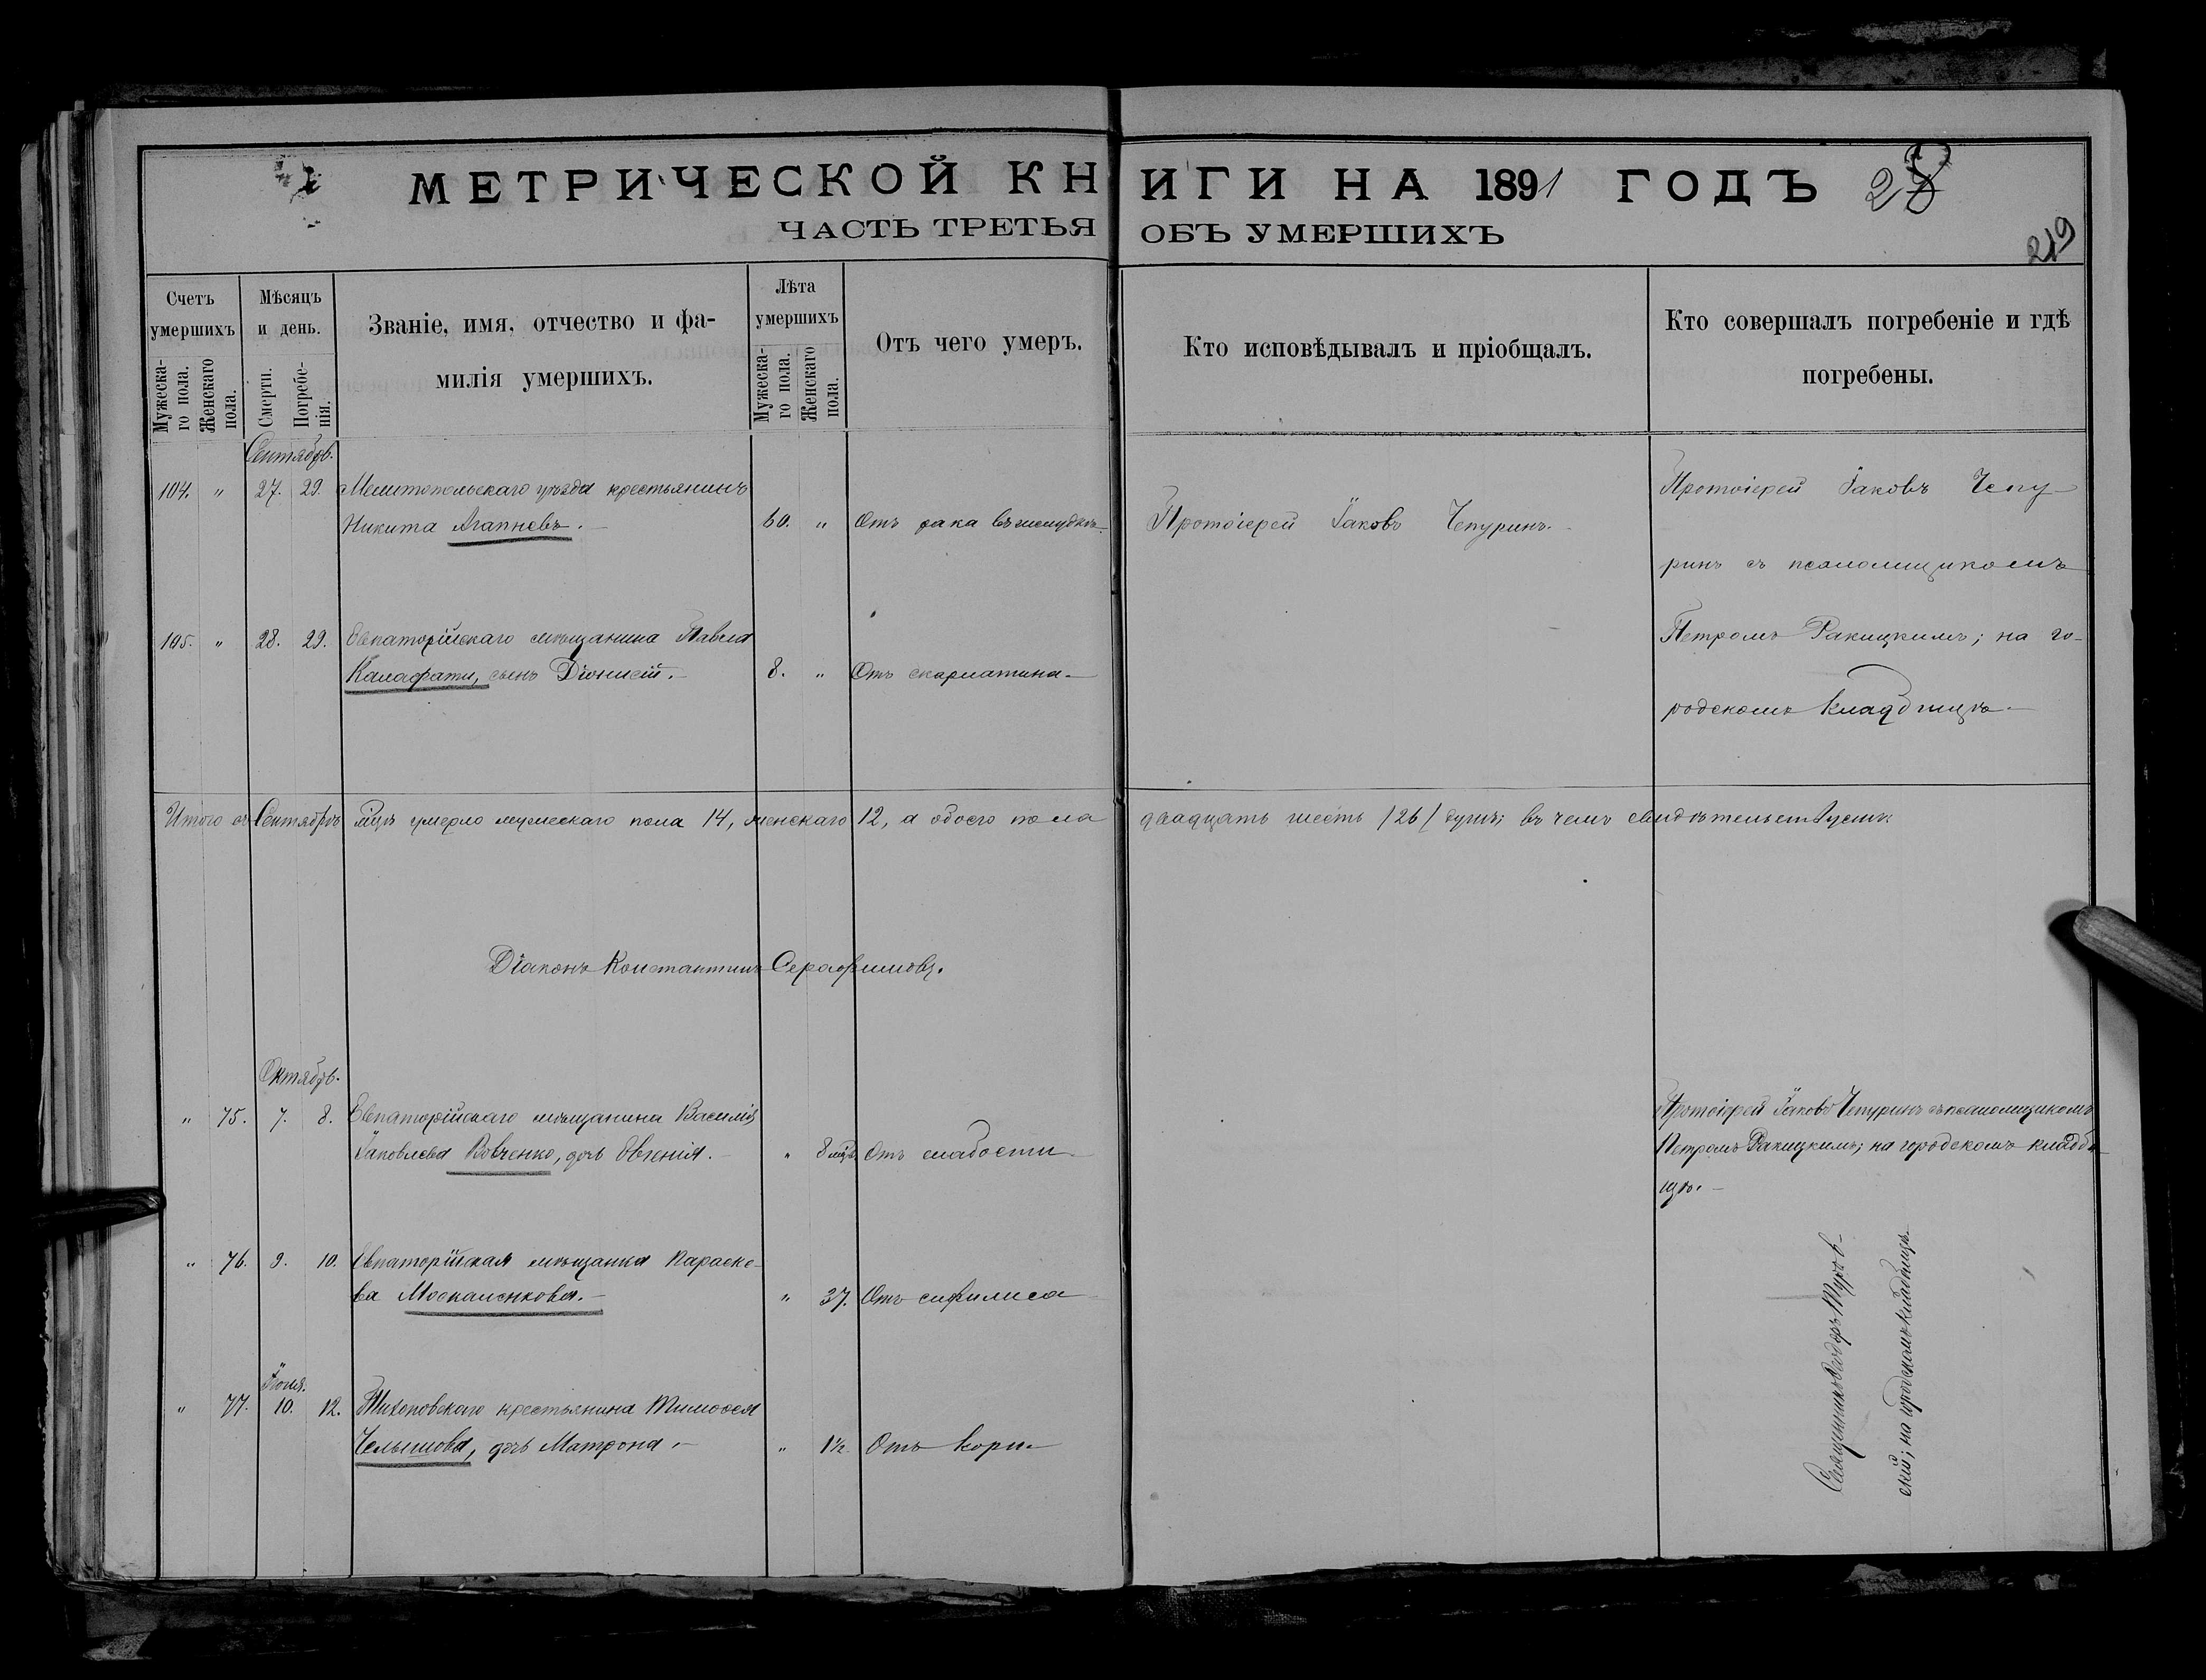 МЕТРИЧЕСКОЙ КНИГИ НА 1891 ГОДЪ 28
ЧАСТЬ ТРЕТЬЯ ОБЪ УМЕРШИХЪ
219
Счетъ умершихъ
Мужеска-
го пола.
Женскаго
пола.
Мѣсяцъ
и день.
Смерти.
Погребе-
нія.
Званіе, имя, отчество и фа-
милія умершихъ.
Лѣта
умершихъ
Мужеска-
го пола.
Женскаго
пола.
Отъ чего умеръ.
Кто исповѣдывалъ и пріобщалъ.
Кто совершалъ погребеніе и гдѣ
погребены.
Сентябрь.
104. " 27. 29. Мелитопольскаго уѣзда крестьянинъ
Никита Агапѣевъ. 60. " Отъ рака въ желудкѣ. Протоіерей Іаковъ Чепуринъ.
Протоіерей Іаковъ Чепу-
ринъ съ псаломщикомъ
Петромъ Ракицкимъ; на го-
родскомъ кладбищѣ.
105. " 28. 29. Евпаторійскаго мѣщанина Павла
Калафати, сынъ Діонисій. 8. " Отъ скарлатина
Итого въ Сентябрѣ мцѣ умерло мужескаго пола 14, женскаго 12, а обоего пола двадцать шесть /26/ душъ; въ чемъ свидѣтельствуемъ
Діаконъ Константинъ Серафимовъ.
Октябрь.
" 75. 7. 8. Евпаторійскаго мѣщанина Василія
Іаковлева Вовченко, дочь Евгенія. " 8 мцъ. Отъ слабости
Протоіерей Іаковъ Чепуринъ съ псаломщикомъ
Петромъ Ракицкимъ; на городскомъ кладби-
щѣ.
" 76. 9. 10. Евпаторійская мѣщанка Параске-
ва Москаленкова. " 37. Отъ сифилиса
Іюня.
" 77. 10. 12. крестьянина Тимоѳея
Челышова, дочь Матрона. " 1½ Отъ кори
Священникъ Ѳеодоръ
скій; на городскомъ кладбищѣ.